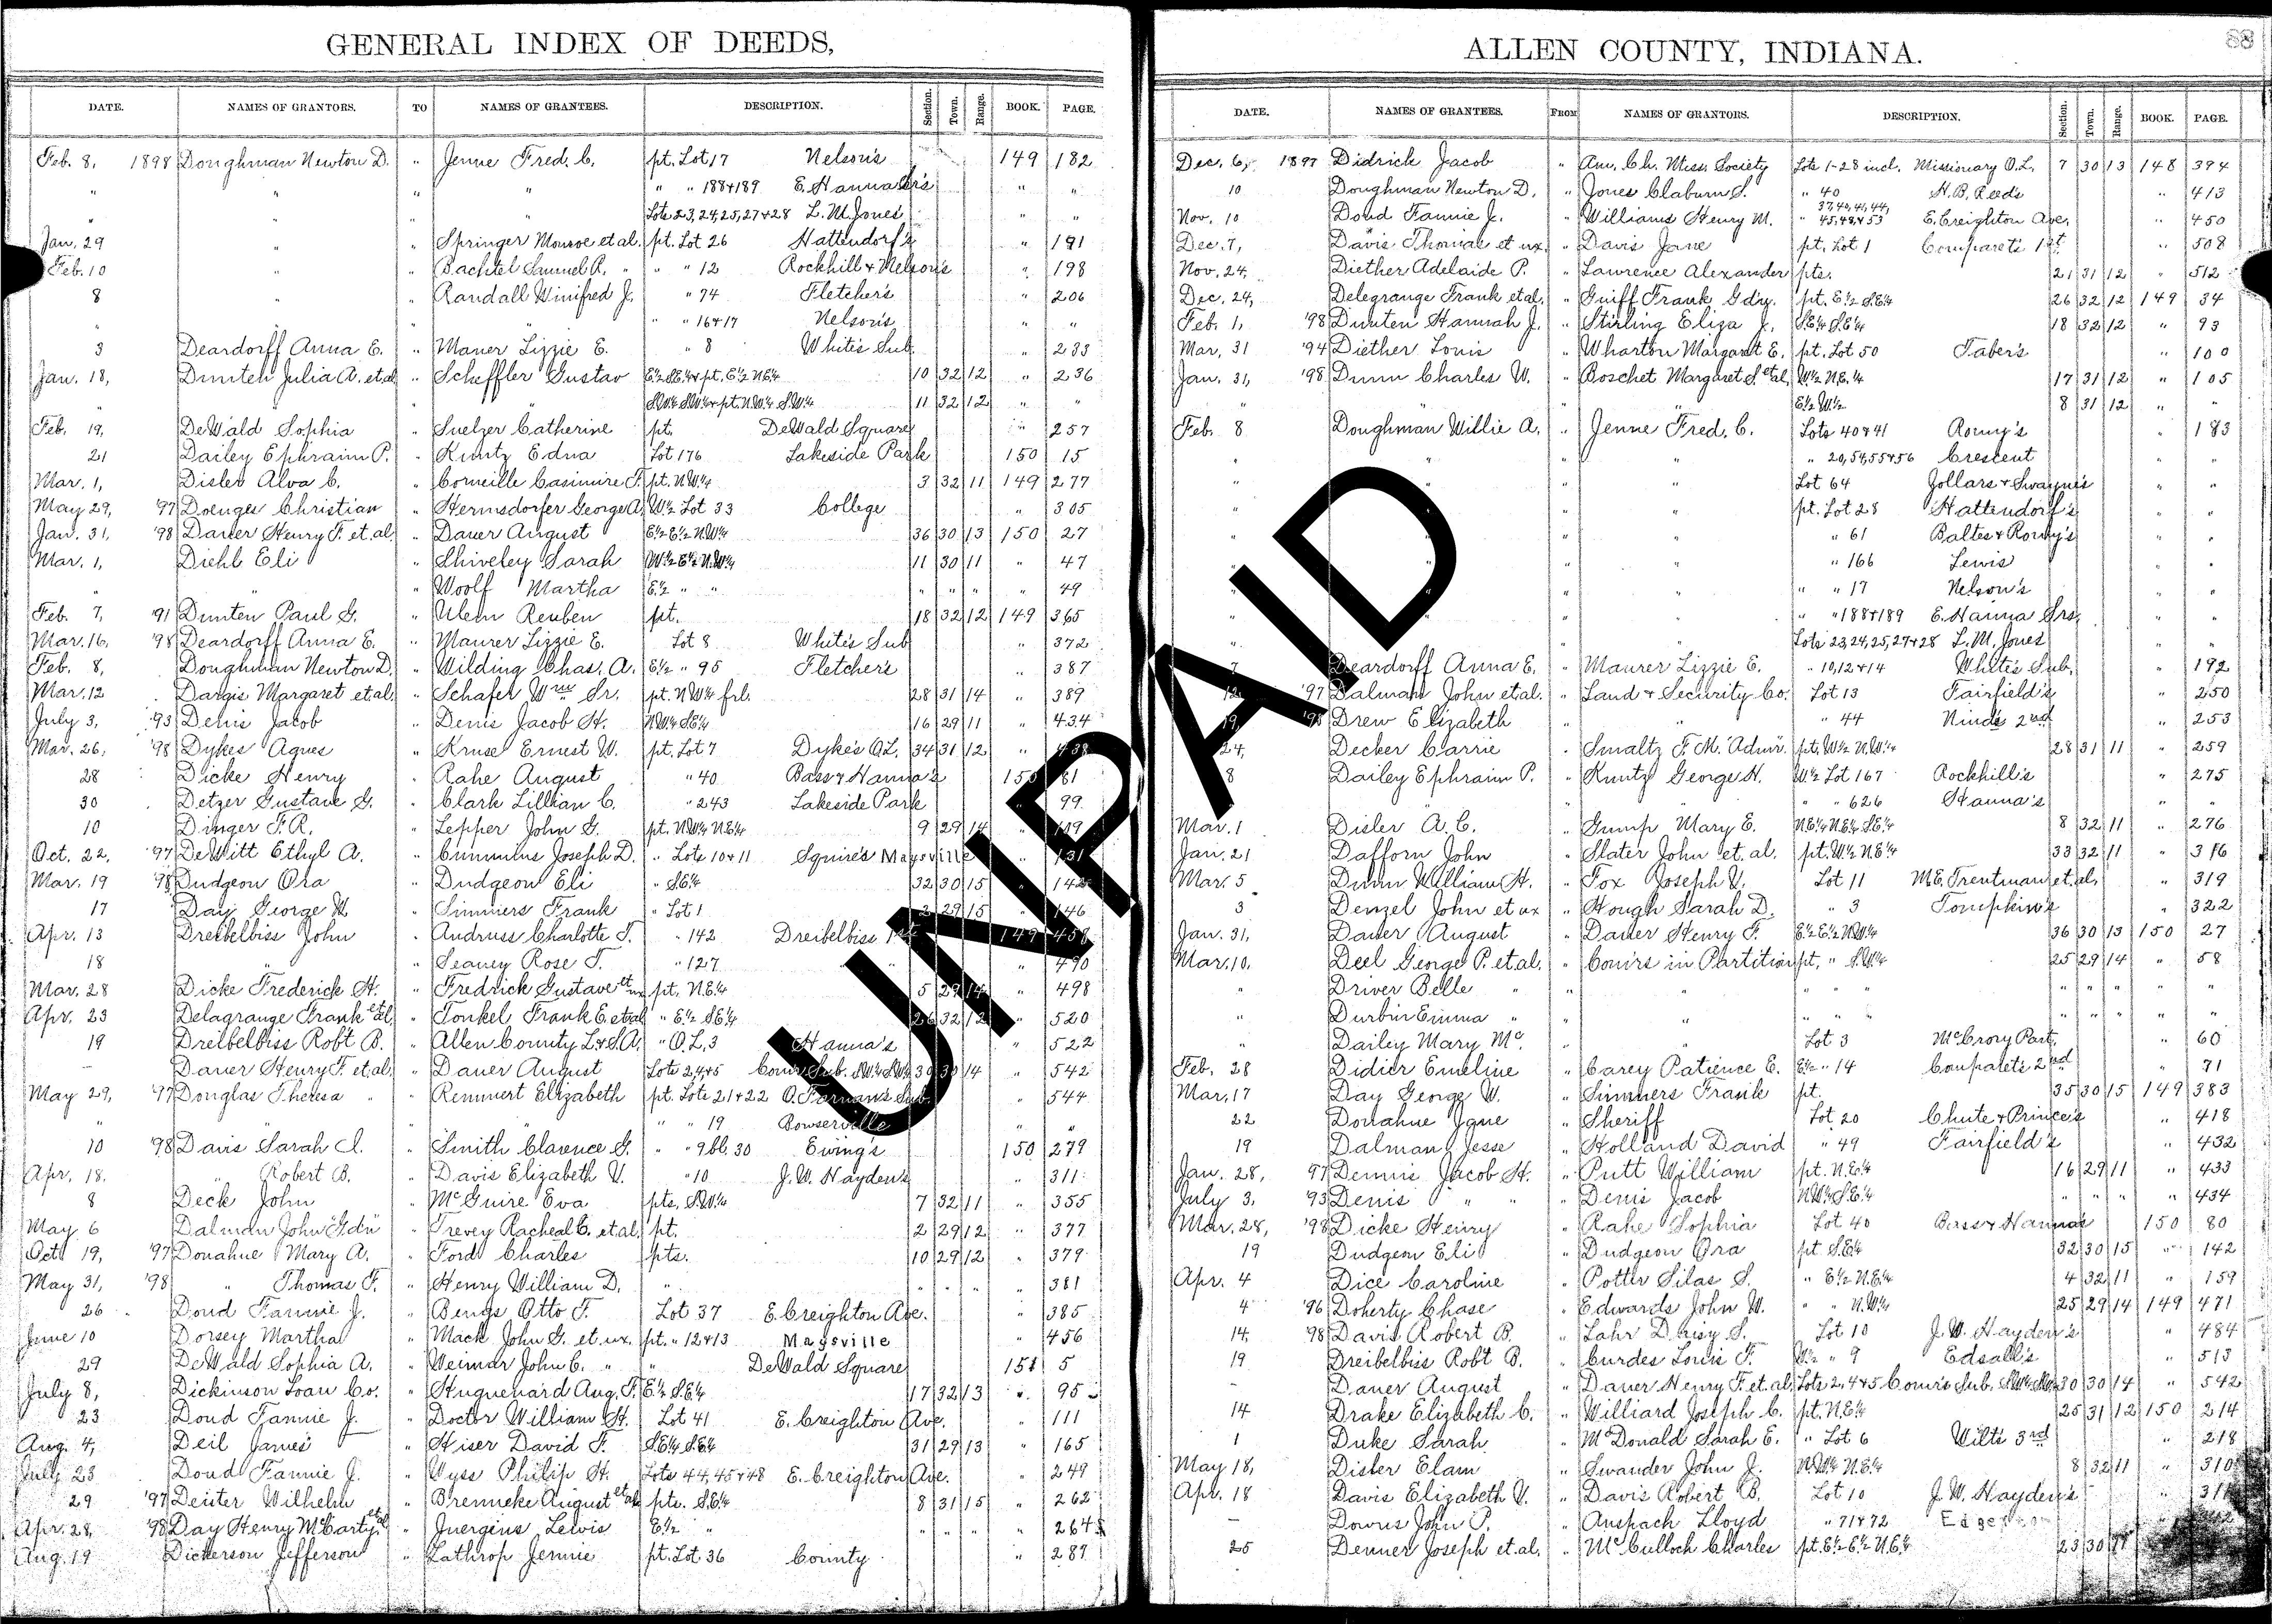 GENERAL INDEX OF DEEDS,
DATE. NAMES OF GRANTORS. TO NAMES OF GRANTEES. DESCRIPTION. Section. Town. Range. BOOK. PAGE.
Feb. 8, 1898 Doughman Newton D. " Jenne Fred. C. pt. Lot 17 Nelson's 149 182
" " " " " " 188+189 E. Hanna Sr's " "
" " " Lots 23,24,25,27+28 L. M. Jones' " "
Jan. 29 " " Springer Monroe et al. pt. Lot 26 Hattendorf's " 191
Feb. 10 " " Bachtel Samuel R. " " " 12 Rockhill + Nelson's " 198
8 " " Randall Winifred J. " 74 Fletcher's " 206
" " " 16+17 Nelson's " "
3 Deardorff Anna E. " Maner Lizzie E. " 8 White's Sub. " 233
Jan. 18, Dunten Julia A. et al " Scheffler Gustav E½ S.E¼ + pt. E½ N.E¼ 10 32 12 " 236
" " S.W¼ S.W¼ + pt. N.W¼ S.W¼ 11 32 12 " "
Feb. 19, DeWald Sophia " Suelzer Catherine pt. DeWald Square " 257
21 Dailey Ephraim P. " Kuntz Edna Lot 176 Lakeside Park 150 15
Mar. 1, Disler Alva C. " Corneille Casimire F. pt. N.W¼ 3 32 11 149 277
May 29, '97 Doenges Christian " Hermsdorfer George A. W½ Lot 33 College " 305
Jan. 31, '98 Dauer Henry F. et. al. " Dauer August E½ E½ N.W¼ 36 30 13 150 27
Mar. 1, Diehl Eli " Shiveley Sarah W½ E½ N.W¼ 11 30 11 " 47
" " " Woolf Martha E½ " " " " " " 49
Feb. 7, '91 Dunten Paul G. " Ulem Reuben pt. 18 32 12 149 365
Mar. 16, '98 Deardorff Anna E. " Maurer Lizzie E. Lot 8 White's Sub " 372
Feb. 8, Doughman Newton D. " Wilding Chas. A. E½ " 95 Fletcher's " 387
Mar. 12 Dargis Margaret et al. " Schafer Wm Sr. pt. N.W¼ frl. 28 31 14 " 389
July 3, '93 Denis Jacob " Denis Jacob H. N.W¼ S.E¼ 16 29 11 " 434
Mar. 26, '98 Dykes Agnes " Kruse Ernest W. pt. Lot 7 Dyke's O.L. 34 31 12 " 438
28 Dicke Henry " Rahe August " 40 Bass + Hanna's 150 81
30 Detzer Gustave G. " Clark Lillian C. " 243 Lakeside Park 99
10 Dinger F. R. " Lepper John G. pt. N.W¼ N.E¼ 9 29 14
Oct. 22, '97 DeWitt Ethyl A. " Cummins Joseph D. " Lots 10+11 Squire's Maysville 131
Mar. 19 '98 Dudgeon Ora " Dudgeon Eli " S.E¼ 32 30 15 142
17 Day George W " Simmers Frank " Lot 1 2 29 15 146
Apr. 13 Dreibelbiss John " Andruss Charlotte T. " 142 Dreibelbiss 1st 149 458
18 " " Seaney Rose T. " 127 " " 490
Mar. 28 Dicke Frederick H. " Fredrick Gustave et ux pt. N.E¼ 5 29 14 " 498
Apr. 23 Delagrange Frank et al. " Tonkel Frank E. et al " E½ S.E¼ 26 32 12 " 520
19 Dreibelbiss Robt B. " Allen County L. + S. A. " O.L. 3 Hanna's " 522
– Dauer Henry F. et al. " Dauer August Lots 2,4+5 Com'rs Sub. S.W¼ S.W¼ 30 30 14 " 542
May 29, '97 Douglas Theresa " " Remmert Elizabeth pt. Lots 21+22 O. Farnan's Sub. " 544
" " " 19 Bowserville " "
10 '98 Davis Sarah I. " Smith Clarence G. " " 9 bl. 30 Ewing's 150 279
Apr. 18. " Robert B. " Davis Elizabeth V. " 10 J. W. Hayden's " 311
8 Deck John " McGuire Eva pts. S.W¼ 7 32 11 " 355
May 6 Dalman John Gdn " Trevey Racheal C. et. al. pt. 2 29 12 " 377
Oct. 19, '97 Donahue Mary A. " Ford Charles pts. 10 29 12 " 379
May 31, '98 " Thomas F. " Henry William D. " " " " " 381
26 Doud Fannie J. " Benys Otto F. Lot 37 E. Creighton Ave. " 385
June 10 Dorsey Martha " Mack John G. et. ux. pt. " 12+13 Maysville " 456
29 DeWald Sophia A. " Weimar John C. " " DeWald Square 151 5
July 8, Dickinson Loan Co. " Huguenard Aug. F. E½ S.E¼ 17 32 13 " 95
23 Doud Fannie J. " Doctor William H. Lot 41 E. Creighton Ave. " 111
Aug. 4, Deil James " Kiser David F. S.E¼ S.E¼ 31 29 13 " 165
July 23 Doud Fannie J. " Wyss Philip H. Lots 44,45+48 E. Creighton Ave. " 249
29 '97 Deuter Wilhelm " Brenneke August et al pts. S.E¼ 8 31 15 " 262
Apr. 28, '98 Day Henry McCarty et al " Juergens Lewis E½ " " " " " 264
Aug. 19 Dickerson Jefferson " Lathrop Jennie pt. Lot 36 County " 289
ALLEN COUNTY, INDIANA.
88
DATE. NAMES OF GRANTEES. FROM NAMES OF GRANTORS. DESCRIPTION. Section. Town. Range. BOOK. PAGE.
Dec. 6, 1897 Didrick Jacob " Am. Ch. Miss. Society Lots 1-28 incl. Missionary O.L. 7 30 13 148 394
10 Doughman Newton D. " Jones Claburn S. " 40 H. B. Reed's " 413
Nov. 10 Doud Fannie J. " Williams Henry M. " 37,40,41,44, 45,48+53 E. Creighton Ave. " 450
Dec. 7, Davis Thomas et ux. " Davis Jane pt. Lot 1 Comparet's 1st " 508
Nov. 24, Diether Adelaide P. " Lawrence Alexander pts. 21 31 12 " 512
Dec. 24, Delegrange Frank et al. " Guiff Frank Gd'n. pt. E½ S.E¼ 26 32 12 149 34
Feb. 1, '98 Dunten Hannah J. " Stirling Eliza J. S.E¼ S.E¼ 18 32 12 " 93
Mar. 31 '94 Diether Louis " Wharton Margaret E. pt. Lot 50 Taber's " 100
Jan. 31, '98 Dunn Charles W. " Boschet Margaret S. et al. W½ N.E.¼ 17 31 12 " 105
" " " E½ W½ 8 31 12 " "
Feb. 8 Doughman Willie A. " Jenne Fred. C. Lots 40+41 Romy's " 183
" " " " " 20,54,55+56 Crescent " "
" " " " Lot 64 Jollars + Swayne's " "
" " " " pt. Lot 28 Hattendorf's " "
" " " " " 61 Baltes + Romy's " "
" " " " " 166 Lewis " "
" " " " " " 17 Nelson's " "
" " " " " " 188+189 E. Hanna Srs. " "
" " Lots 23,24,25,27+28 L. M. Jones " "
7 Deardorff Anna E. " Maurer Lizzie E. " 10,12+14 White's Sub. " 192
12 '97 Dalman John et al. " Land + Security Co. Lot 13 Fairfield's " 250
19, '98 Drew Elizabeth " " " 44 Nind's 2nd " 253
24, Decker Carrie " Smaltz F. M. Adm'r. pt. W½ N.W¼ 28 31 11 " 259
8 Dailey Ephraim P. " Kuntz George H. W½ Lot 167 Rockhill's " 275
" " " " " 626 Hanna's " "
Mar. 1 Disler A. C. " Gump Mary E. N.E¼ N.E¼ S.E¼ 8 32 11 " 276
Jan. 21 Dafforn John " Slater John et. al. pt. W½ N.E¼ 33 32 11 " 316
Mar. 5 Dunn William H. " Fox Joseph V. Lot 11 M.E. Trentman et. al. " 319
3 Denzel John et ux " Hough Sarah D. " 3 Tompkin's " 322
Jan. 31, Dauer August " Dauer Henry F. E½ E½ N.W¼ 36 30 13 150 27
Mar. 10, Deel George P. et. al. " Com'rs in Partition pt. " S.W¼ 25 29 14 " 58
" Driver Belle " " " " " " " " " "
" Durbin Emma " " " " " " " " " "
" Dailey Mary Mc. " " Lot 3 McCrory Part. " 60
Feb. 28 Didier Emeline " Carey Patience E. E½ " 14 Comparet's 2nd " 71
Mar. 17 Day George W. " Simmers Frank pt. 35 30 15 149 383
22 Donahue Jane " Sheriff Lot 20 Chute + Prince's " 418
19 Dalman Jesse " Holland David " 49 Fairfield's " 432
Jan. 28, '97 Dennis Jacob H. " Putt William pt. N.E¼ 16 29 11 " 433
July 3, '93 Denis " " " Denis Jacob N.W¼ S.E.¼ " " " " 434
Mar. 28, '98 Dicke Henry " Rahe Sophia Lot 40 Bass + Hanna's 150 80
19 Dudgeon Eli " Dudgeon Ora pt. S.E¼ 32 30 15 " 142
Apr. 4 Dice Caroline " Potter Silas S. " E½ N.E¼ 4 32 11 " 159
4 '96 Doherty Chase " Edwards John W. " " N.W¼ 25 29 14 149 471
14, '98 Davis Robert B. " Lahr Daisy S. Lot 10 J. W. Hayden's " 484
19 Dreibelbiss Robt B. " Curdes Louis F. W½ " 9 Edsall's " 513
– Dauer August " Dauer Henry F. et. al. Lots 2,4+5 Com'rs Sub. S.W¼ S.W¼ 30 30 14 " 542
14 Drake Elizabeth C. " Williard Joseph C. pt. N.E¼ 25 31 12 150 214
1 Duke Sarah " McDonald Sarah E. " Lot 6 Wilt's 3rd " 218
May 18, Disler Elam " Swander John J. N.W¼ N.E¼ 8 32 11 " 310
Apr. 18 Davis Elizabeth V. " Davis Robert B. Lot 10 J. W. Hayden's " 311
– Downs John P. " Anspach Lloyd " 71+72 Edgerton
25 Denner Joseph et. al. " McCulloch Charles pt. E½ E½ N.E¼ 23 30
UNPAID